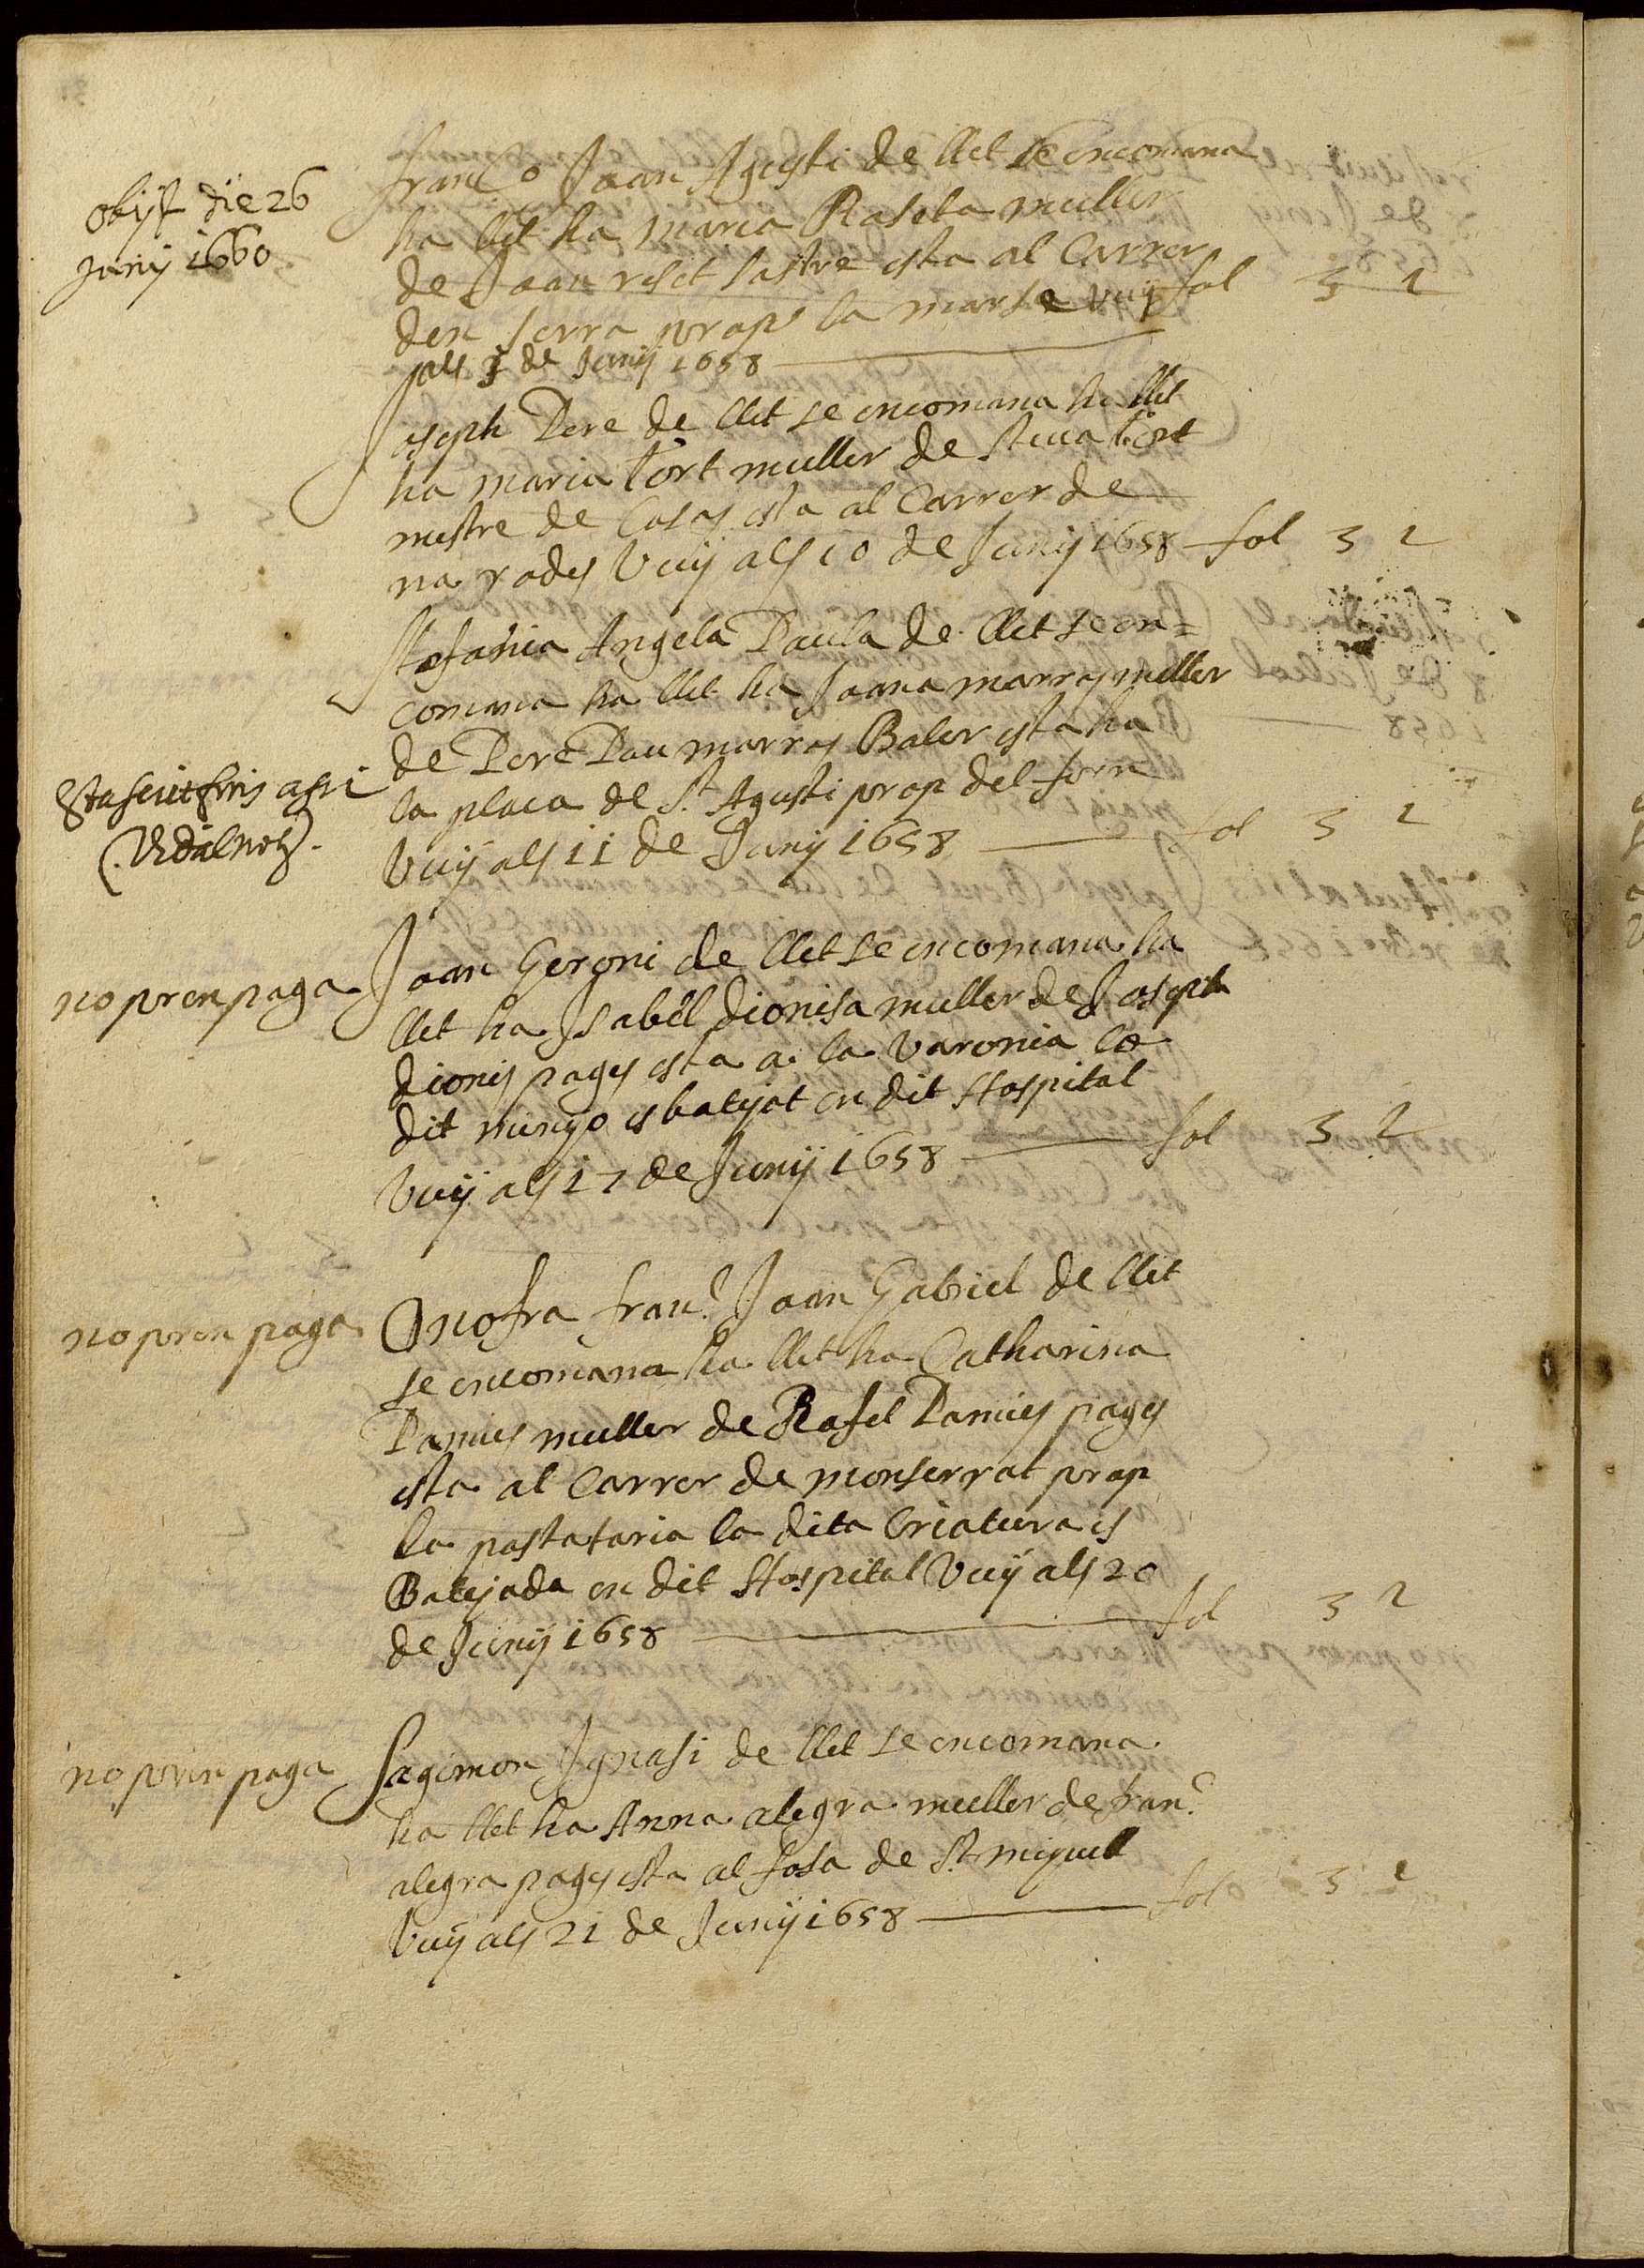 obijt die 26
Juny 1660
franco Joan Agusti de llet se encomana
ha llet ha maria Roseta muller
de Joan roset sastre esta al Carrer
den serra prop la marse vuy fol 3 1
als 3 de Juny 1658
Joseph Pere de llet se encomana ha llet
ha maria tort muller de steva tort
mestre de Casas esta al Carrer de
na rodes Vuy als 10 de Juny 1658 fol 3 2
Stefania Angela Paula de llet se en=
comana ha llet ha Joana marras muller
de Pere Pau marras Baler esta ha
la plaça de St. Agusti prop del forn
Vuy als 11 de Juny 1658 fol 3 2
Esta scuit fins asi
(Vidal not).
no pren paga Joan Geroni de llet se encomana ha
llet ha Isabel dionisa muller de Joseph
dionis pages esta a la Varonia lo
dit minyo es batejat en dit Hospital
Vuy als 17 de Juny 1658 fol 3 2
no pren paga Onofra franca Joan Gabriel de llet
se encomana ha llet ha Catharina
Damies muller de Rafel Damies pages
esta al Carrer de monserrat prop
la pastataria la dita Criatura es
Batejada en dit Hospital Vuy als 20
de Juny 1658 fol 3 2
no pren paga Sagimon Ignasi de llet se encomana
ha llet ha Anna alegra muller de franc
alegra pages esta al fosa de St. miquel
Vuy als 21 de Juny 1658 fol 3 2